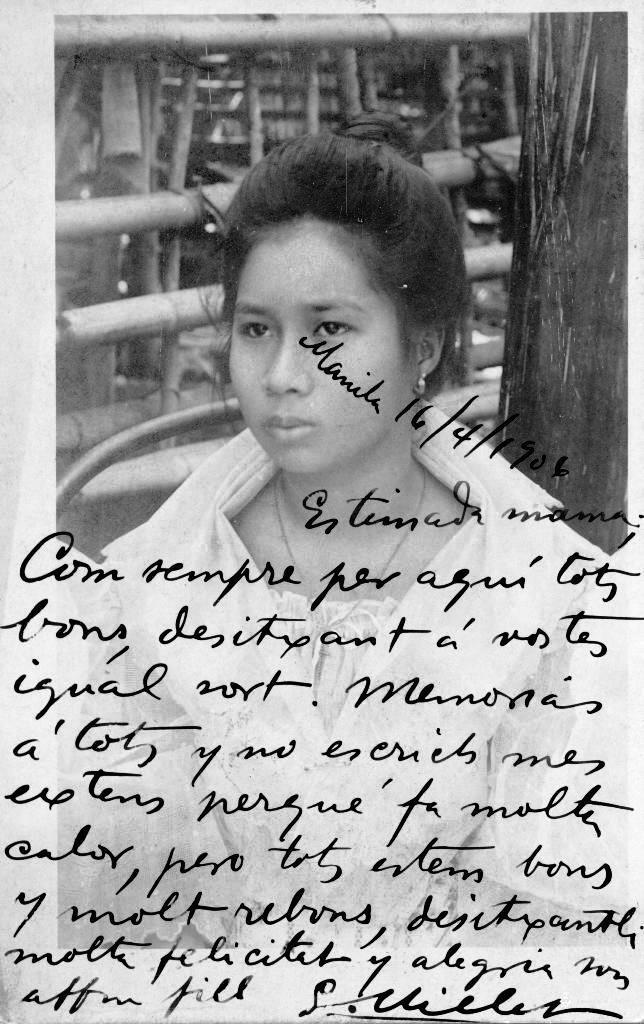 Manila 16/4/1906
Estimada mama:
Com sempre per aquí tots
bons, desitxant á vostes
iguál sort. Memorias
á tots y no escrich mes
extens perqué fa molta
calor, pero tots estem bons
y molt rebons, desitxantli
molta felicitat y alegria son
affm fill E. Millet